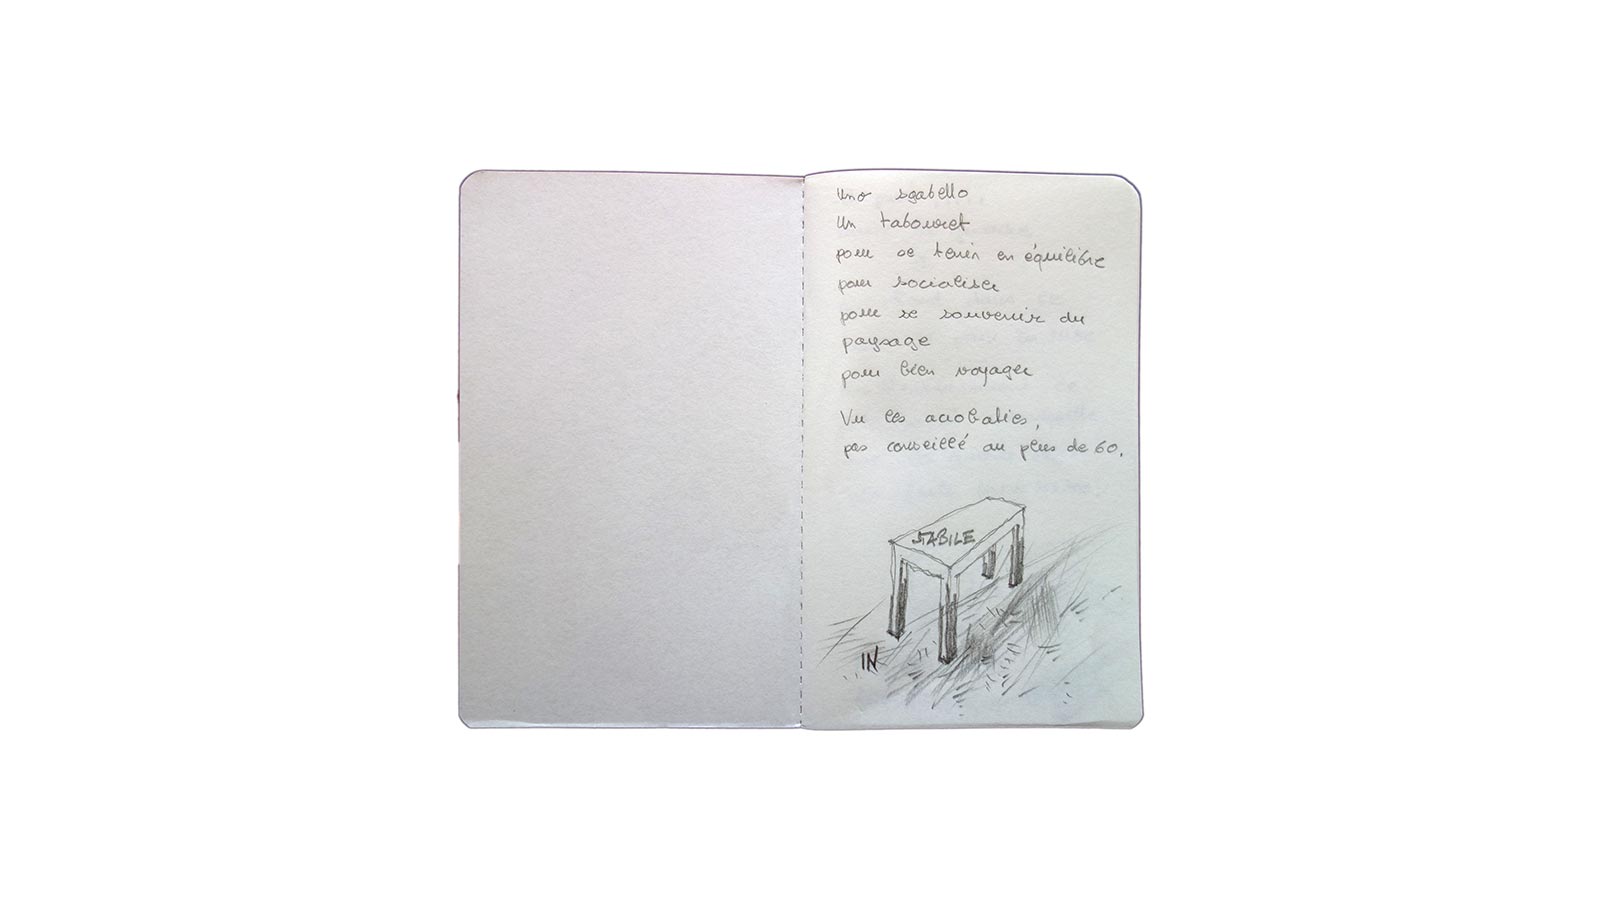 Uno sgabello
Un tabouret
pour se tenir en équilibre
pour socialiser
pour se souvenir du
paysage
pour bien voyager
Vu les acrobaties,
pas conseillé au plus de 60.
STABILE
IN